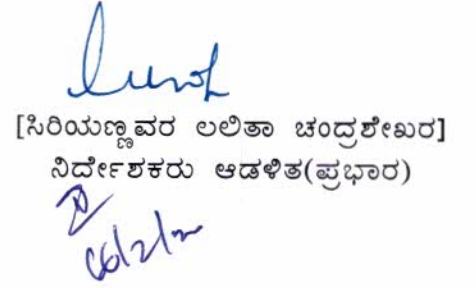 [ಸಿರಿಯಣ್ಣವರ ಲಲಿತಾ ಚಂದ್ರಶೇಖರ]
ನಿರ್ದೇಶಕರು ಆಡಳಿತ(ಪ್ರಭಾರ)